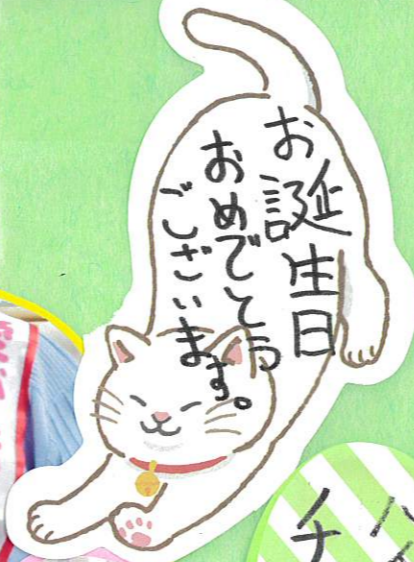 お誕生日
おめでとう
ございます。
チ